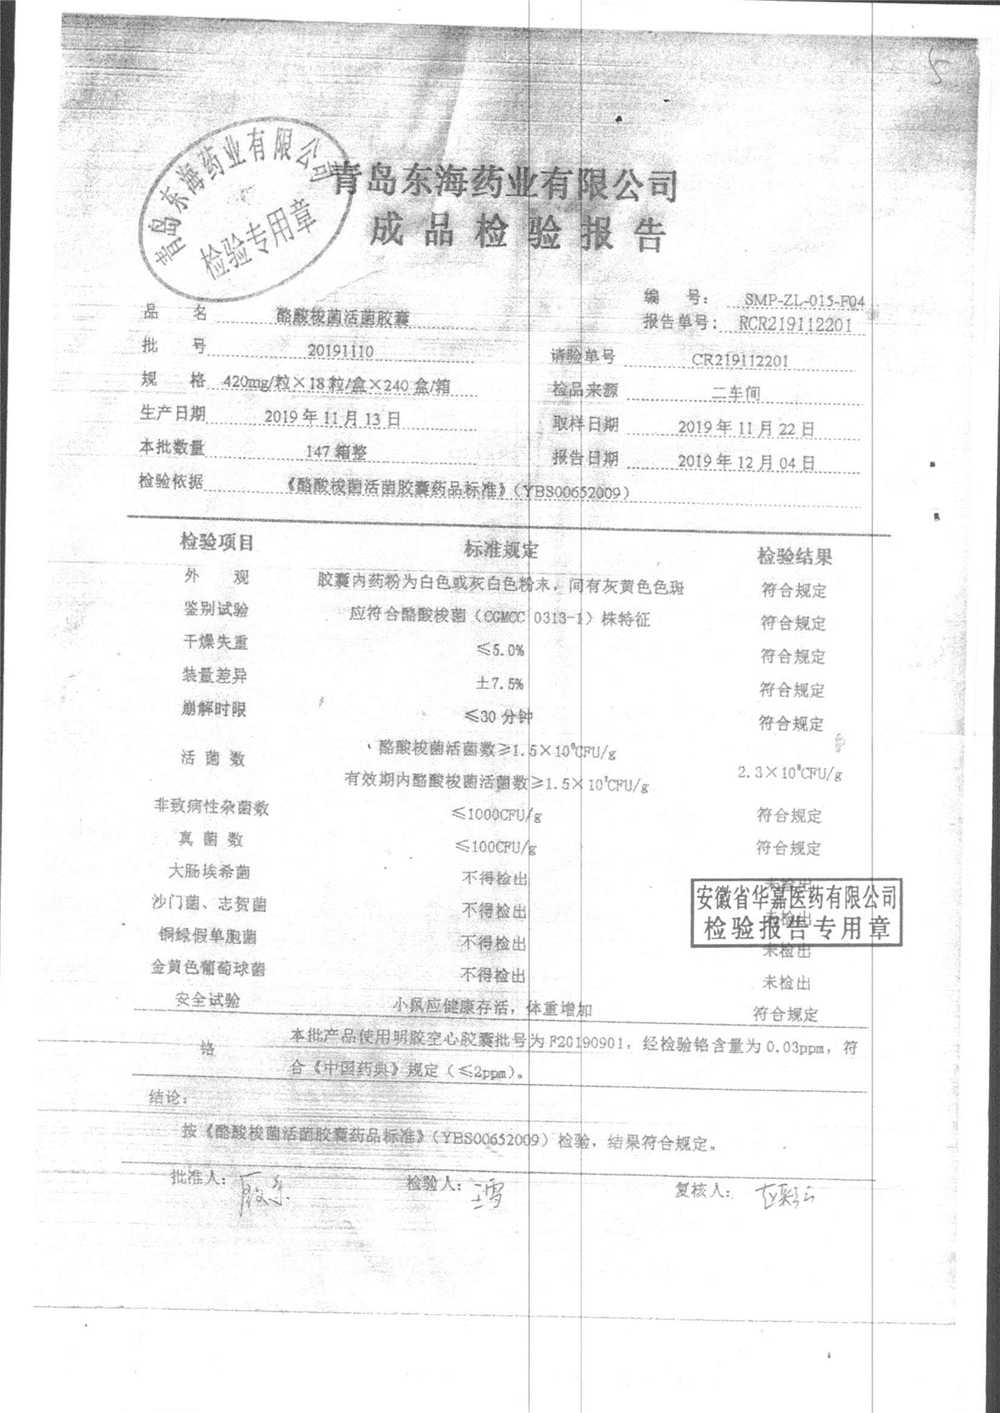 青岛东海药业有限公司
检验专用章
青岛东海药业有限公司
成品检验报告
编 号: SMP-ZL-015-F04
报告单号: RCR219112201
品 名 酪酸梭菌活菌胶囊
批 号 20191110 请验单号 CR219112201
规 格 420mg/粒×18粒/盒×240盒/箱 检品来源 二车间
生产日期 2019年11月13日 取样日期 2019年11月22日
本批数量 147箱整 报告日期 2019年12月04日
检验依据 《酪酸梭菌活菌胶囊药品标准》(YBS00652009)
检验项目 标准规定 检验结果
外 观 胶囊内药粉为白色或灰白色粉末，间有灰黄色色斑 符合规定
鉴别试验 应符合酪酸梭菌（CGMCC 0313-1）株特征 符合规定
干燥失重 ≤5.0% 符合规定
装量差异 ±7.5% 符合规定
崩解时限 ≤30分钟 符合规定
活菌数 酪酸梭菌活菌数≥1.5×10 CFU/g
有效期内酪酸梭菌活菌数≥1.5×10 CFU/g 2.3×10 CFU/g
非致病性杂菌数 ≤1000CFU/g 符合规定
真菌数 ≤100CFU/g 符合规定
大肠埃希菌 不得检出 未检出
安徽省华嘉医药有限公司
检验报告专用章
沙门菌、志贺菌 不得检出 未检出
铜绿假单胞菌 不得检出 未检出
金黄色葡萄球菌 不得检出 未检出
安全试验 小鼠应健康存活，体重增加 符合规定
铬 本批产品使用明胶空心胶囊批号为F20190901，经检验铬含量为0.03ppm，符
合《中国药典》规定（≤2ppm）。
结论:
按《酪酸梭菌活菌胶囊药品标准》（YBS00652009）检验，结果符合规定。
批准人: 检验人: 王雪 复核人: